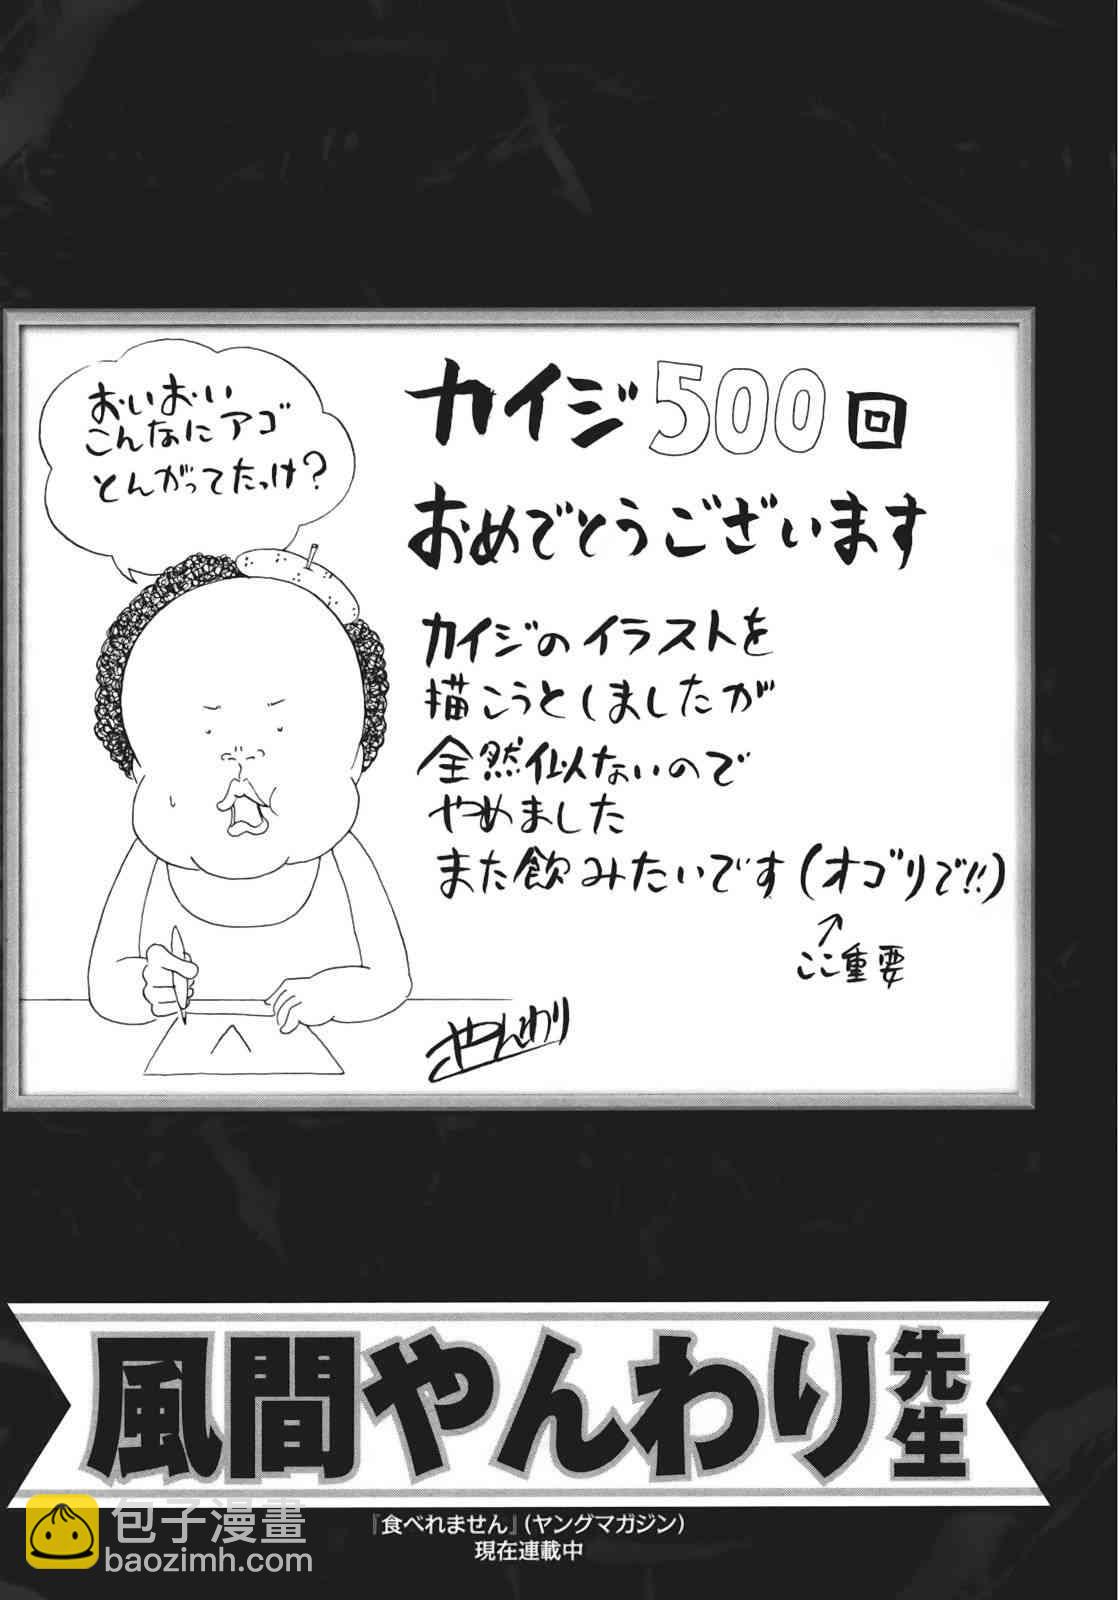 おいおい
こんなにアゴ
とんがってたっけ?
カイジ500回
おめでとうございます
カイジのイラストを
描こうとしましたが
全然似ないので
やめました
また飲みたいです(オゴリで!!)
↑
ここ重要
やんわり
風間やんわり先生
『食べれません』(ヤングマガジン)
現在連載中
包子漫畫
baozimh.com